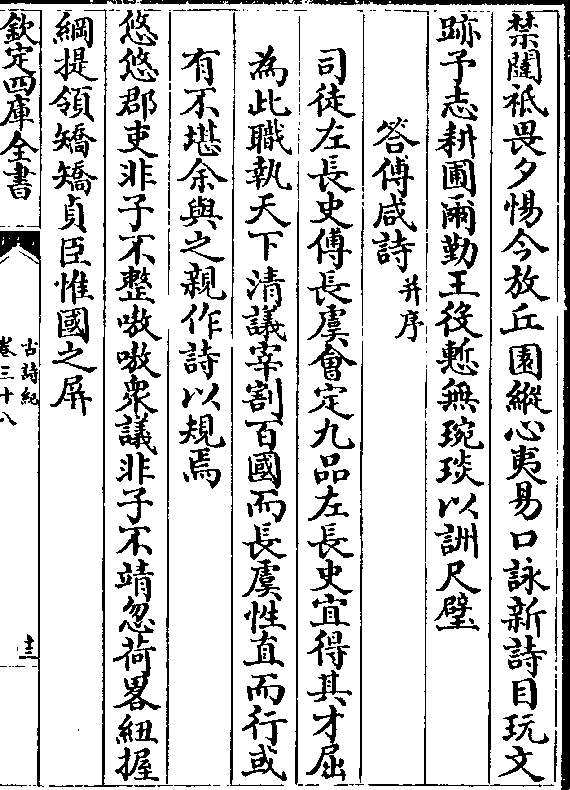 禁闥祗畏夕惕今放丘園縱心夷易口詠新詩目玩文
跡予志耕圃爾勤王役慙無琬琰以詶尺璧
答傅咸詩并序
司徒左長史傅長虞會定九品左長史宜得其才屈
為此職執天下清議宰割百國而長虞性直而行或
有不堪余與之親作詩以規焉
悠悠郡吏非子不整嗷嗷衆議非子不靖忽荷畧紐握
綱提領矯矯貞臣惟國之屏
欽定四庫全書
古詩紀
卷三十八